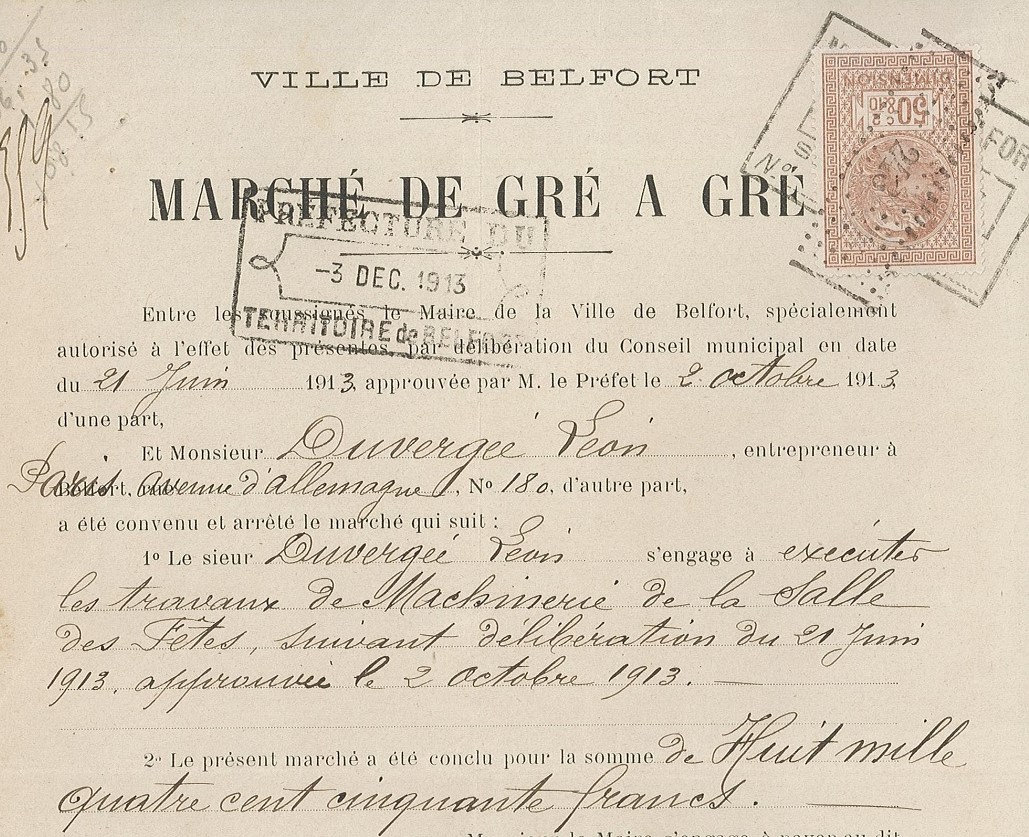 VILLE DE BELFORT
MARCHÉ DE GRÉ A GRÉ
DIMENSION
50 c
2/10
PRÉFECTURE DU
-3 DEC. 1913
TERRITOIRE de BELFORT
Entre les soussignés le Maire de la Ville de Belfort, spécialement
autorisé à l'effet des présentes, par délibération du Conseil municipal en date
du 21 Juin 1913, approuvée par M. le Préfet le 2 octobre 1913
d'une part,
Et Monsieur Duvergée Léon, entrepreneur à
Paris, avenue d'allemagne, No 180, d'autre part,
a été convenu et arrêté le marché qui suit :
1o Le sieur Duvergée Léon s'engage à exécuter
les travaux de Machinerie de la Salle
des Fêtes, suivant délibération du 21 Juin
1913, approuvée le 2 octobre 1913.
2o Le présent marché a été conclu pour la somme de Huit mille
quatre cent cinquante francs.